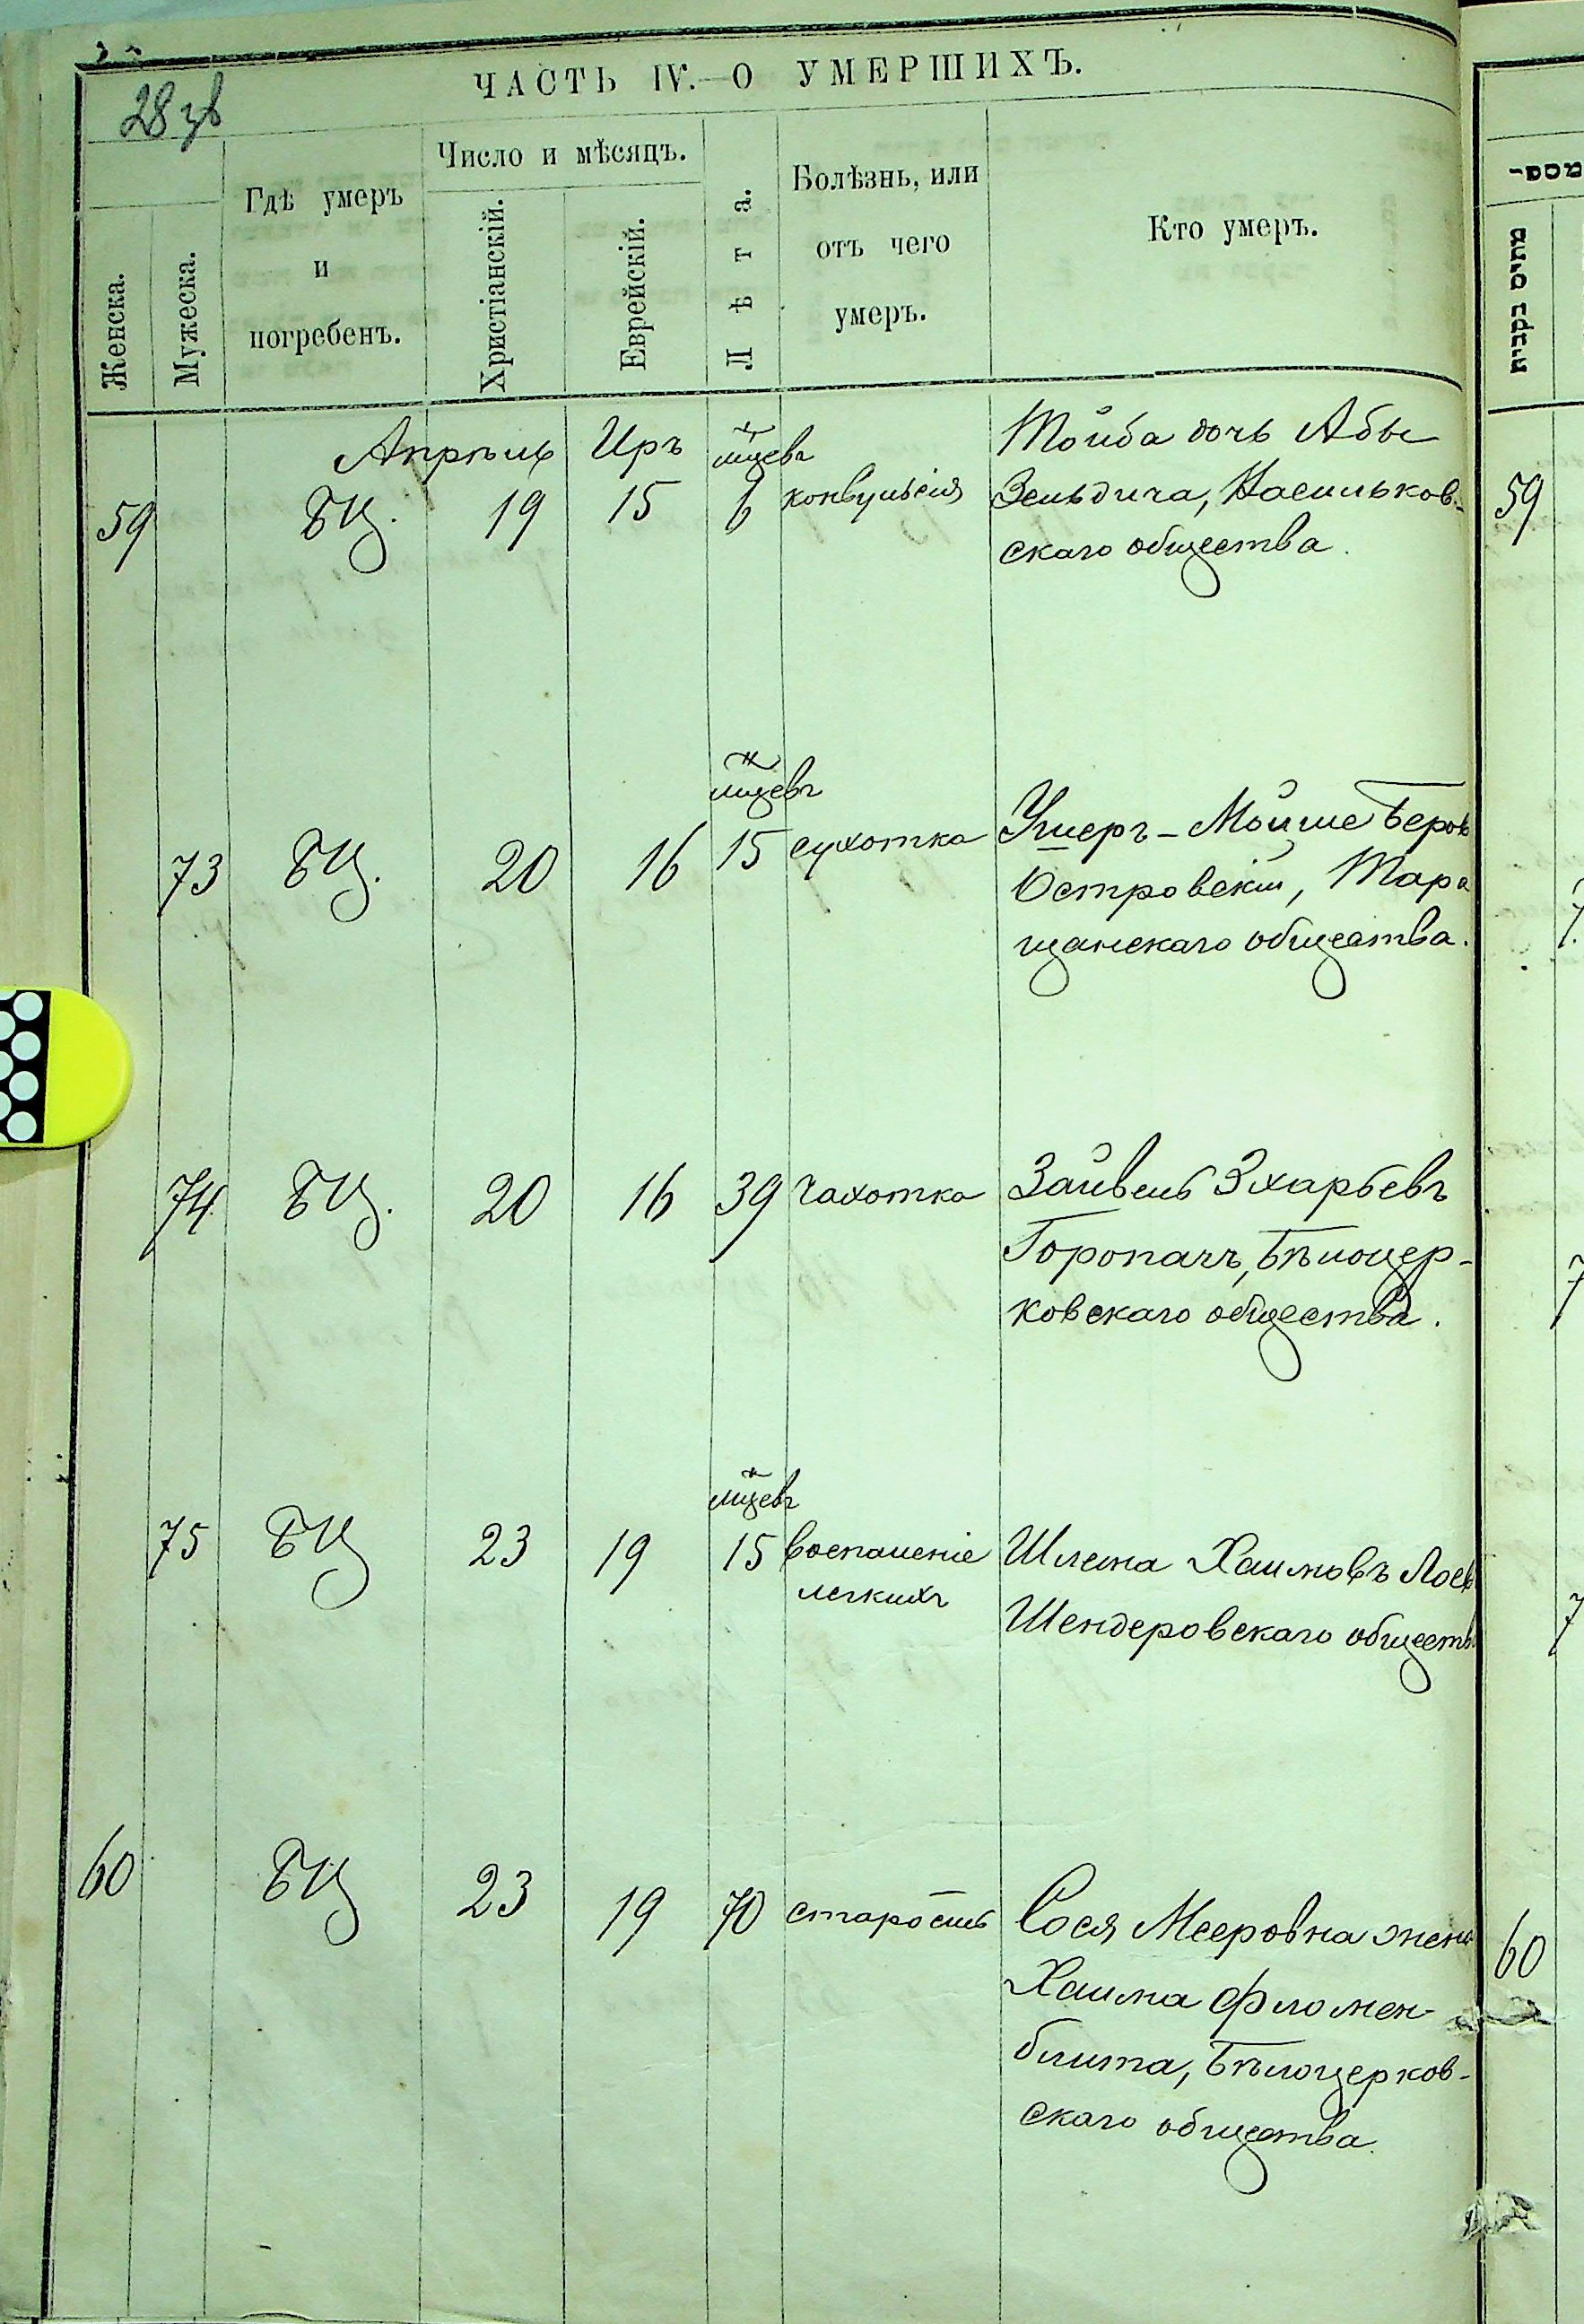 ЧАСТЬ IV.—О УМЕРШИХЪ.
28 зв
Женска.
Мужеска.
Гдѣ умеръ
и
погребенъ.
Число и мѣсяцъ.
Христіанскій.
Еврейскій.
Лѣта.
Болѣзнь, или
отъ чего
умеръ.
Кто умеръ.
Апрѣль Иръ
59 БЦ. 19 15 мцевъ 6 конвульсія Тойба дочь Абы
Зельдича, Васильков-
скаго общества.
73 БЦ. 20 16 мцевъ 15 сухотка Ушеръ-Мойше Беров
Островскій, Тара
щанскаго общества.
74 БЦ. 20 16 39 чахотка Зайвель Зхарьевъ
Горопачъ, Бѣлоцер-
ковскаго общества.
75 БЦ 23 19 мцевъ 15 воспаленіе Шлема Хаимовъ Лоев
легкихъ
Шендеровскаго обществ
60 БЦ 23 19 70 старость Сося Мееровна жена
Хаима Фломен-
блита, Бѣлоцерков-
скаго общества.
59
60